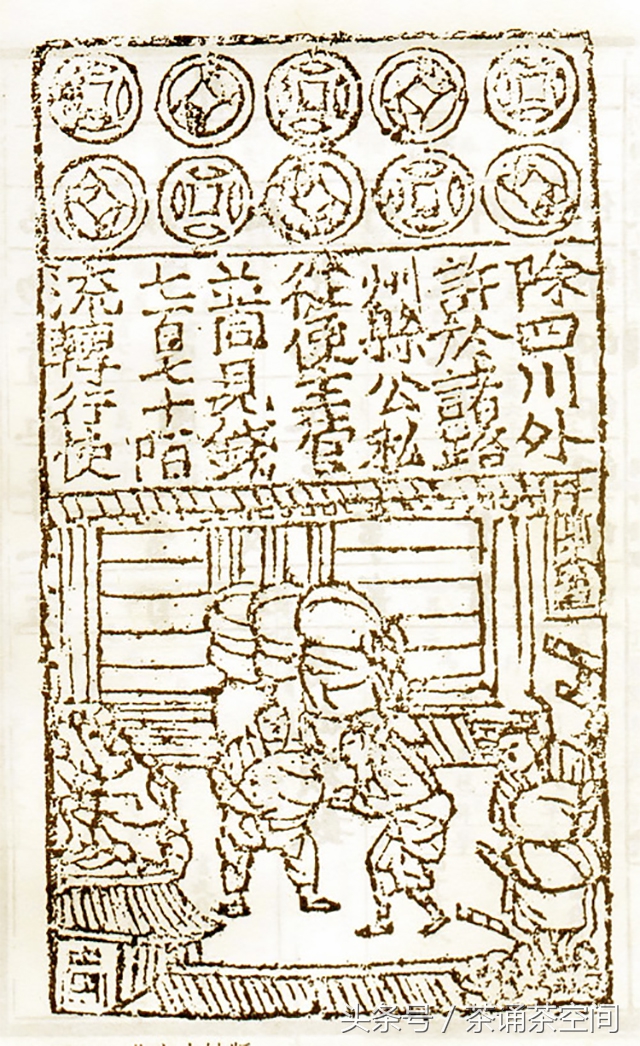 除四川外
許於諸路
州縣公私
從便主管
並同見錢
七百七十陌
流轉行使
头条号 / 茶诵茶空间